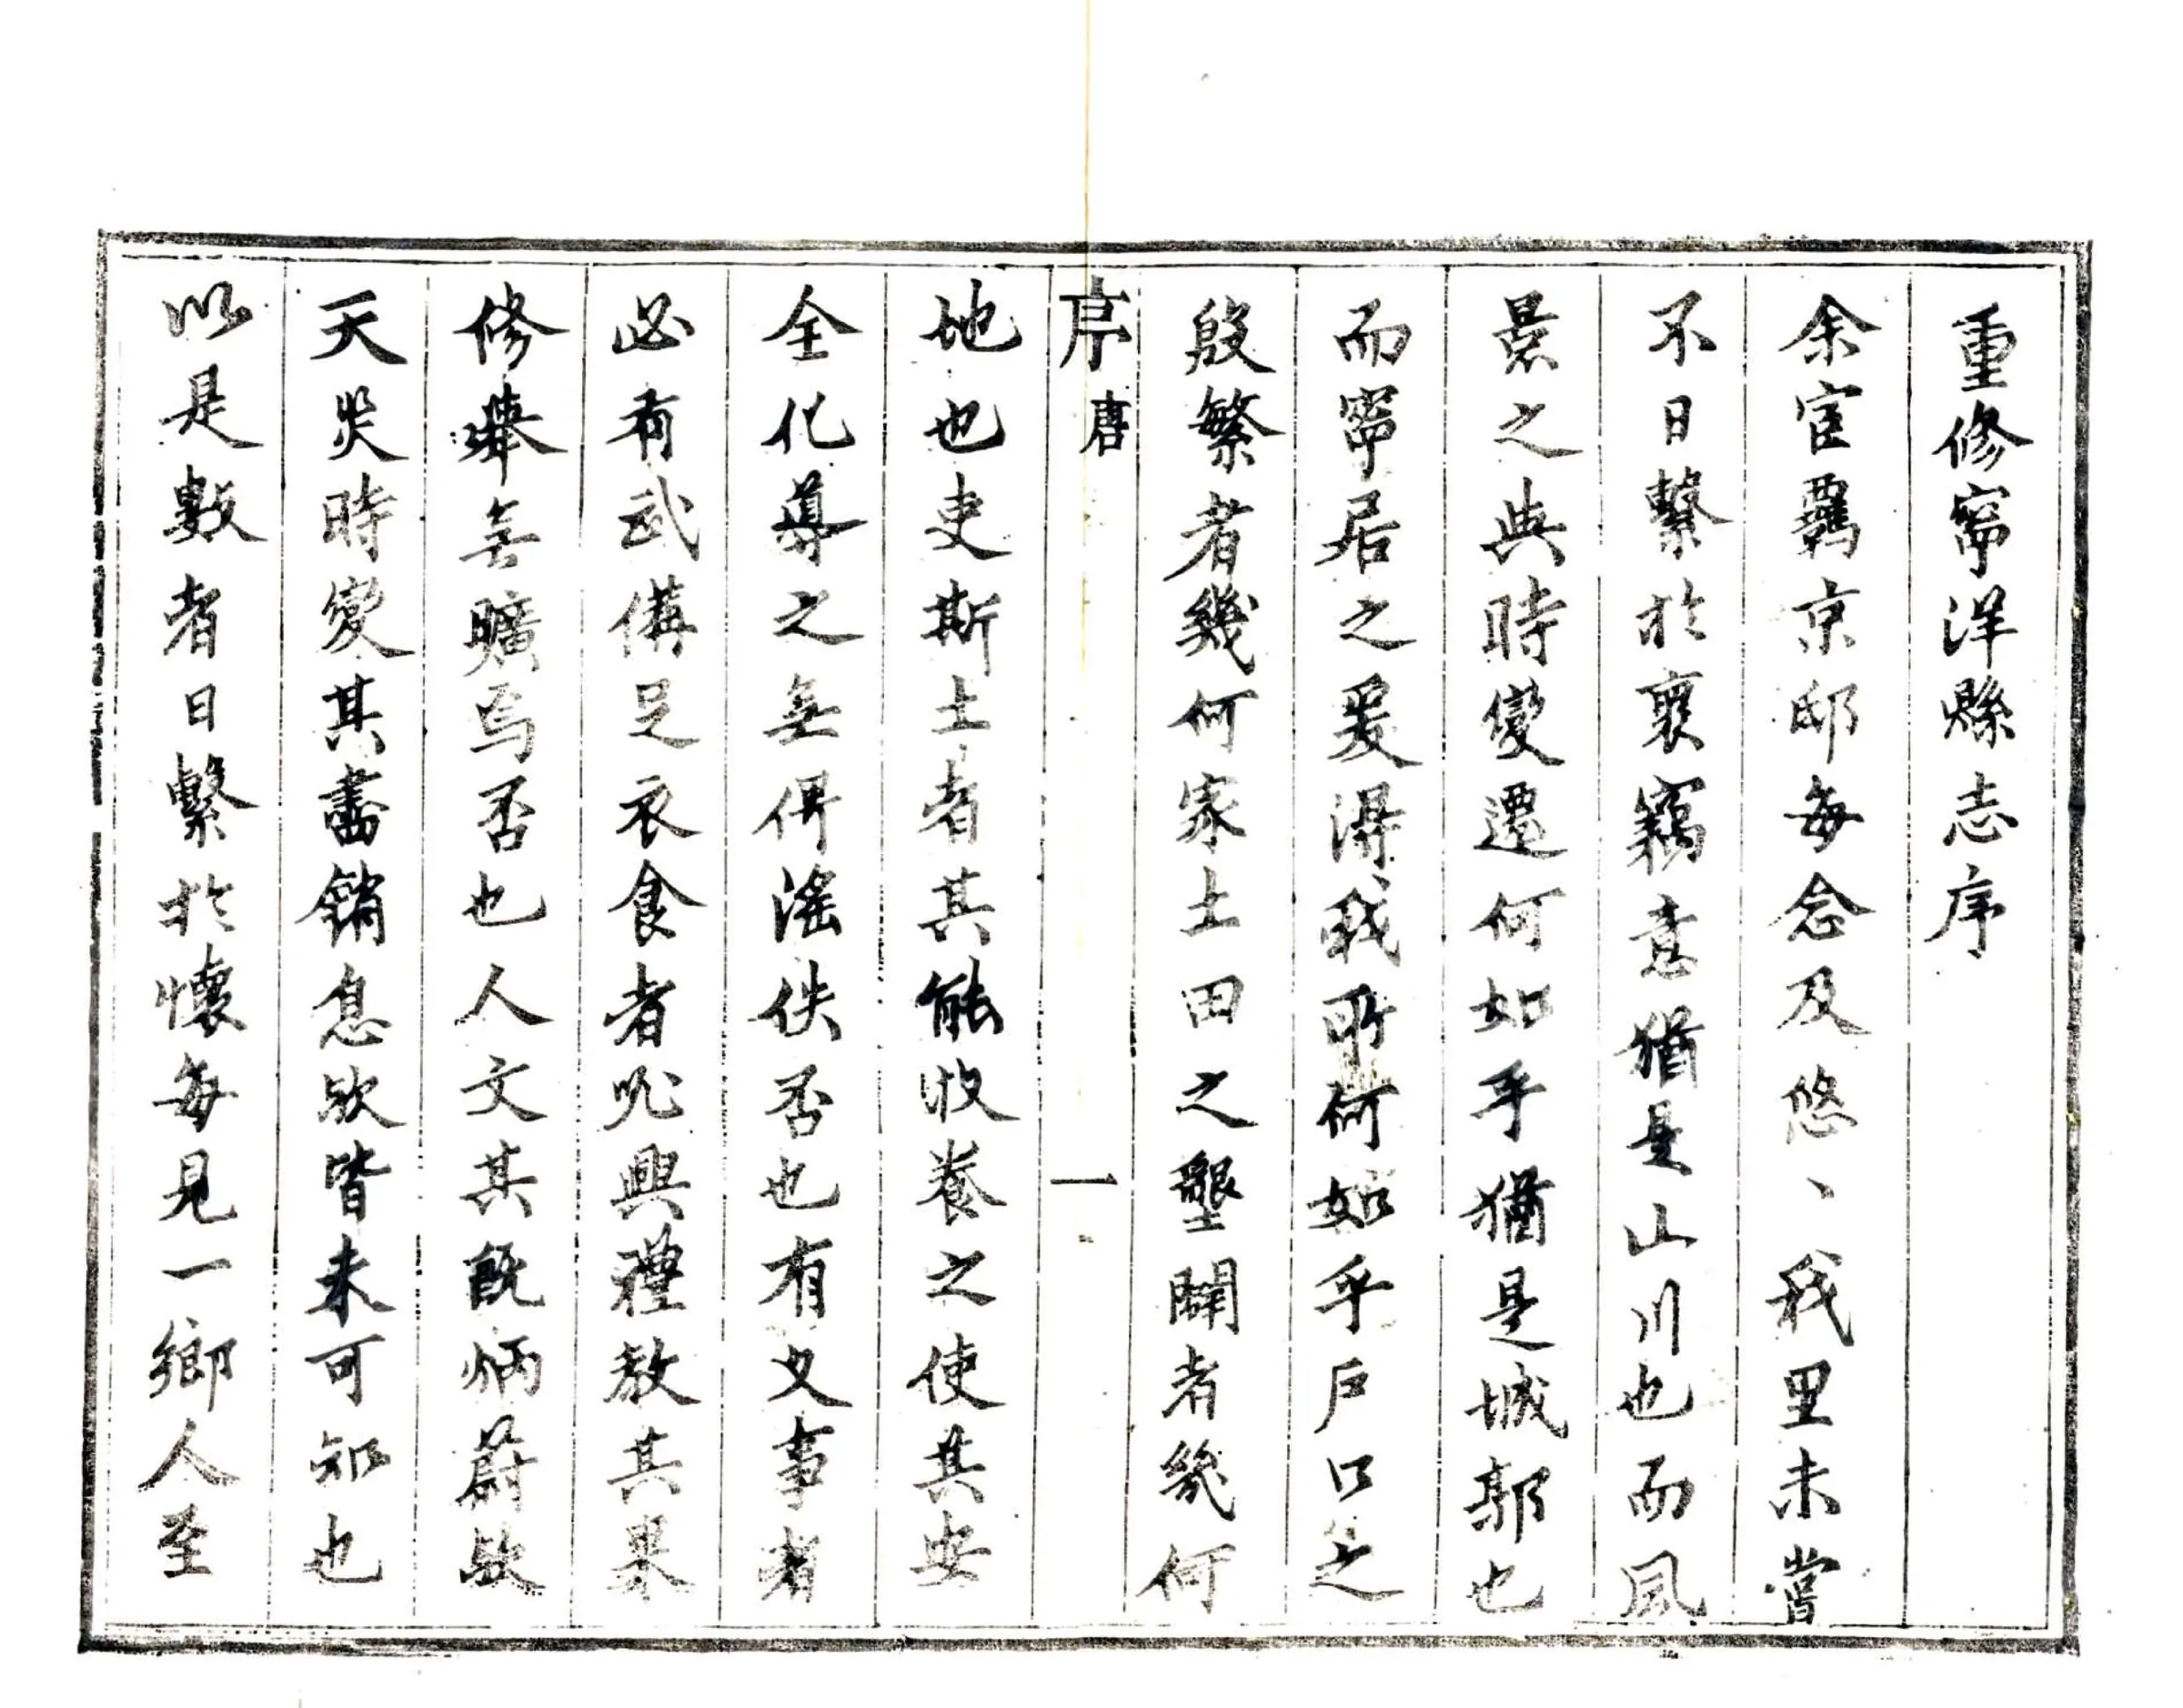 重修寧洋縣志序
余宦羈京邸每念及悠、我里未嘗
不日繫於褱竊意猶是山川也而風
景之與時變遷何如乎猶是城郭也
而寧居之爰得我所何如乎戶口之
殷繁者幾何家土田之墾闢者幾何
序唐
一
地也吏斯土者其能牧養之使其安
全化導之無俾淫佚否也有文事者
必有武備足衣食者必興禮教其果
修舉無曠焉否也人文其既炳蔚歟
天災時變其盡銷息歟皆未可知也
以是數者日繫於懷每見一鄉人至